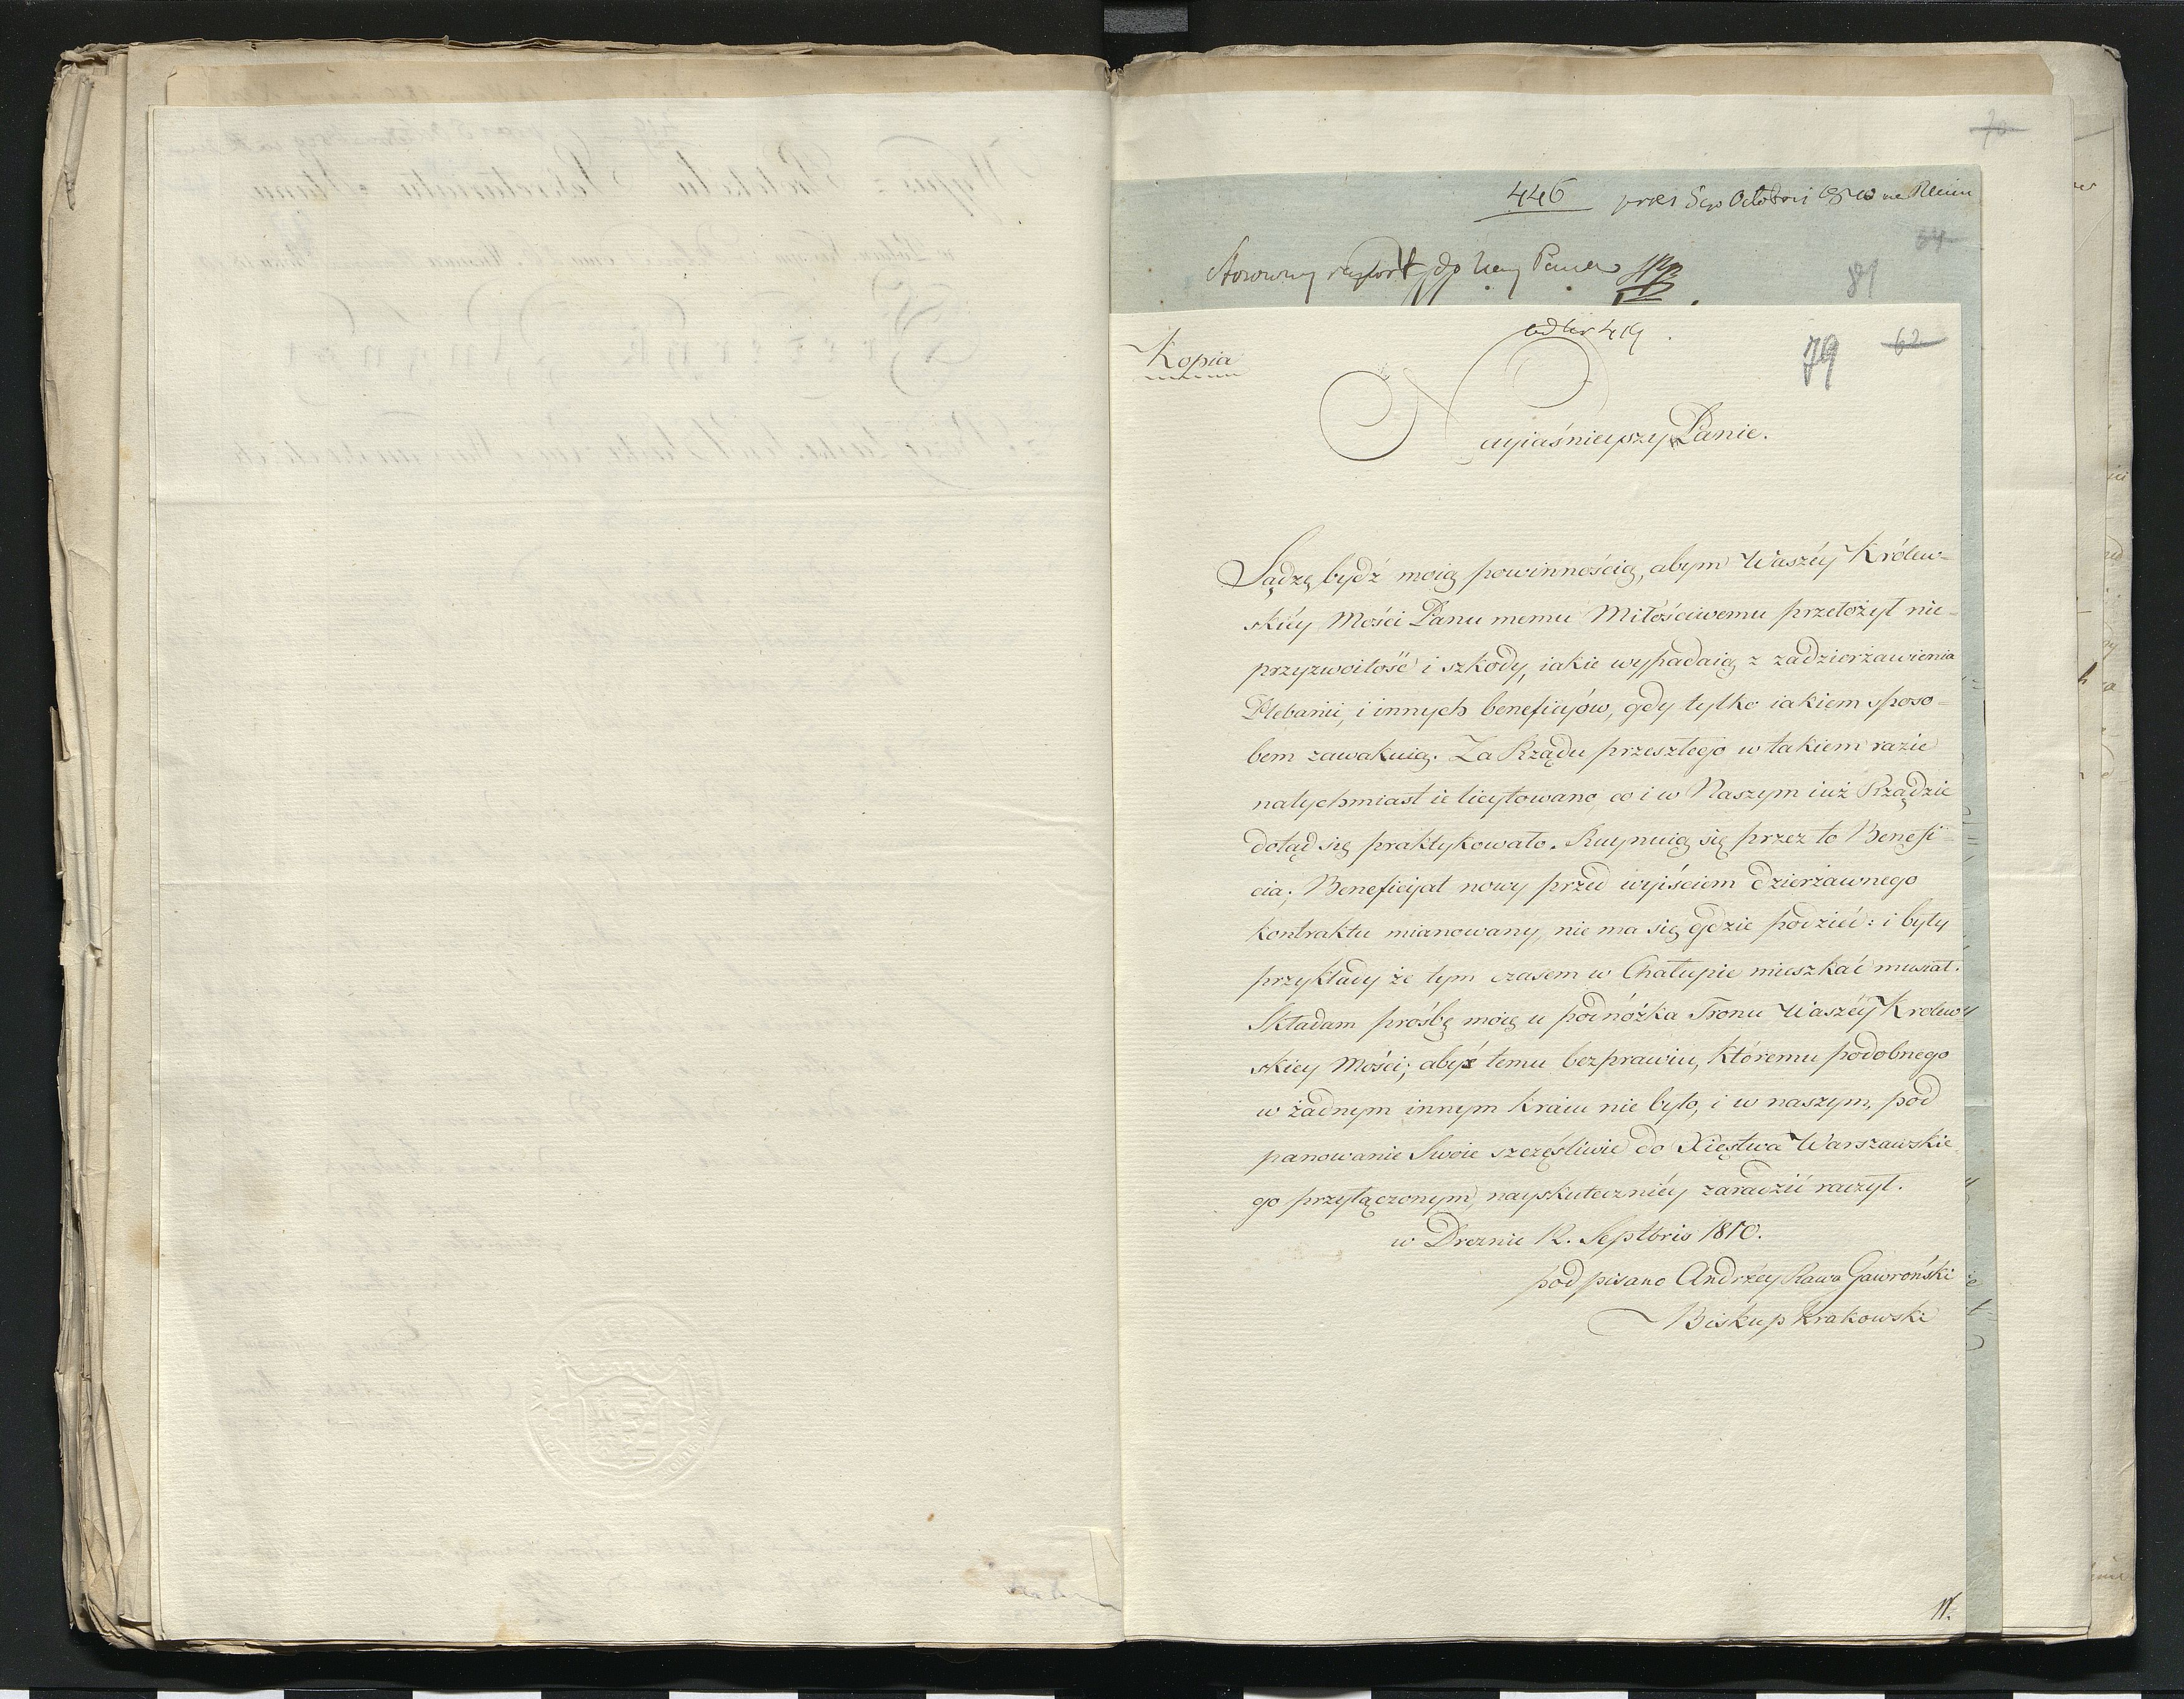 70
446 pres 5go Octobris 1810 ne Plenu
64
Stosowny raport do Nayj Pana
81
ad Nr 419.
Kopia
79 62
Nayiaśnieyszy Panie.
Sądzę bydź moią powinnością, abym Waszéy Królew-
skiéy Mości Panu memu Miłościwemu przełożył nie-
przyzwoitość i szkody, iakie wypadaią z zadzierżawienia
Plebanii, i innych beneficyów, gdy tylko iakiem sposo-
bem zawakuią. Za Rządu przeszłego w takiem razie
natychmiast ie licytowano, co i w Naszym iuż Rządzie
dotąd się praktykowało. Ruynuią się przez to Benefi-
cia; Beneficyat nowy przed wyiściem dzierżawnego
kontraktu mianowany, nie ma się gdzie podzieć: i były
przykłady że tym czasem w Chałupie mieszkać musiał.
Składam prośbę moię u podnóżka Tronu Waszéy Królew-
skiey Mości; abyś temu bezprawiu, któremu podobnego
w żadnym innym kraiu nie było, i w naszym, pod
panowanie Swoie szczęśliwie do Xięstwa Warszawskie-
go przyłączonym, nayskuteczniéy zaradzić raczył.
w Dreznie 12. Septbris 1810.
podpisano Andrzéy Rawa Gawroński
Biskup Krakowski